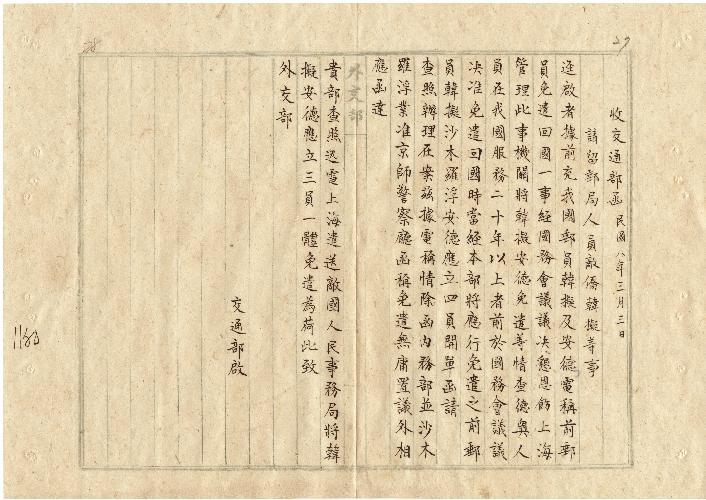 27
28
收交通部函 民國八年三月三日
請留郵局人員敵僑韓擬等事
逕啟者據前充我國郵員韓擬及安德電稱前郵
員免遣回國一事經國務會議議決懇恩飭上海
管理此事機關將韓擬安德免遣等情查德奧人
員在我國服務二十年以上者前於國務會議議
決准免遣回國時當經本部將應行免遣之前郵
員韓擬沙木羅浮安德應立四員開單函請
查照辦理在案茲據電稱情除函內務部並沙木
羅浮業准京師警察廳函稱免遣無庸置議外相
應函達
外交部
貴部查照迅電上海遣送敵國人民事務局將韓
擬安德應立三員一體免遣為荷此致
外交部
交通部啟
1183